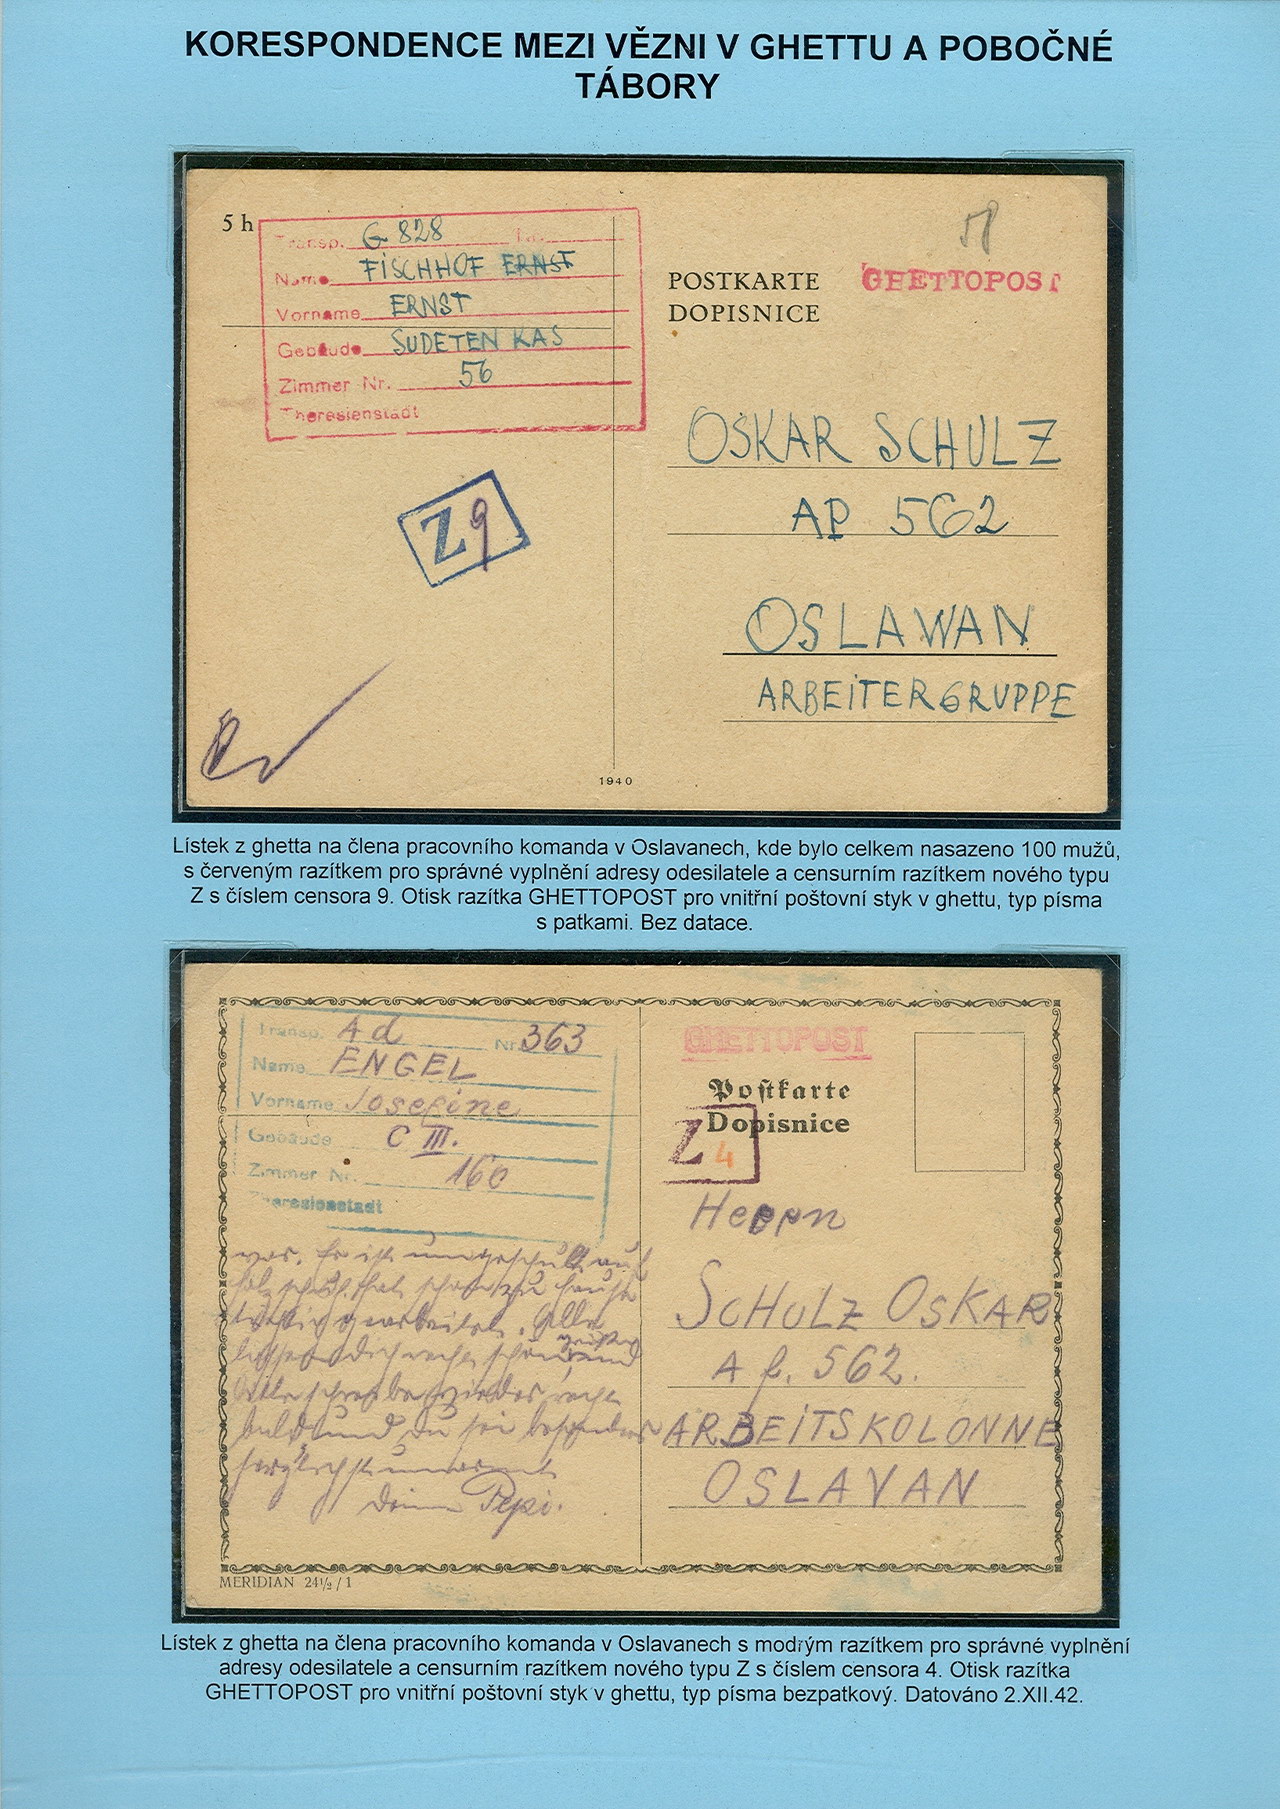 KORESPONDENCE MEZI VĚZNI V GHETTU A POBOČNÉ
TÁBORY
5 h
Transp. G 828 Nr.
Name FISCHHOF ERNST
Vorname ERNST
Gebäude SUDETEN KAS
Zimmer Nr. 56
Theresienstadt
POSTKARTE
DOPISNICE
GHETTOPOST
Z 9
OSKAR SCHULZ
AP 562
OSLAWAN
ARBEITERGRUPPE
1940
Lístek z ghetta na člena pracovního komanda v Oslavanech, kde bylo celkem nasazeno 100 mužů,
s červeným razítkem pro správné vyplnění adresy odesilatele a censurním razítkem nového typu
Z s číslem censora 9. Otisk razítka GHETTOPOST pro vnitřní poštovní styk v ghettu, typ písma
s patkami. Bez datace.
Transp. Ad Nr. 363
Name ENGEL
Vorname Josefine
Gebäude C III.
Zimmer Nr. 160
Theresienstadt
war. Er ist umgeschult auf
und Du sei besonders
herzlichst umarmt
Deine Pepi.
GHETTOPOST
Postkarte
Dopisnice
Z 4
Herrn
SCHULZ OSKAR
A f. 562.
ARBEITSKOLONNE
OSLAVAN
MERIDIAN 24½/1
Lístek z ghetta na člena pracovního komanda v Oslavanech s modrým razítkem pro správné vyplnění
adresy odesilatele a censurním razítkem nového typu Z s číslem censora 4. Otisk razítka
GHETTOPOST pro vnitřní poštovní styk v ghettu, typ písma bezpatkový. Datováno 2.XII.42.